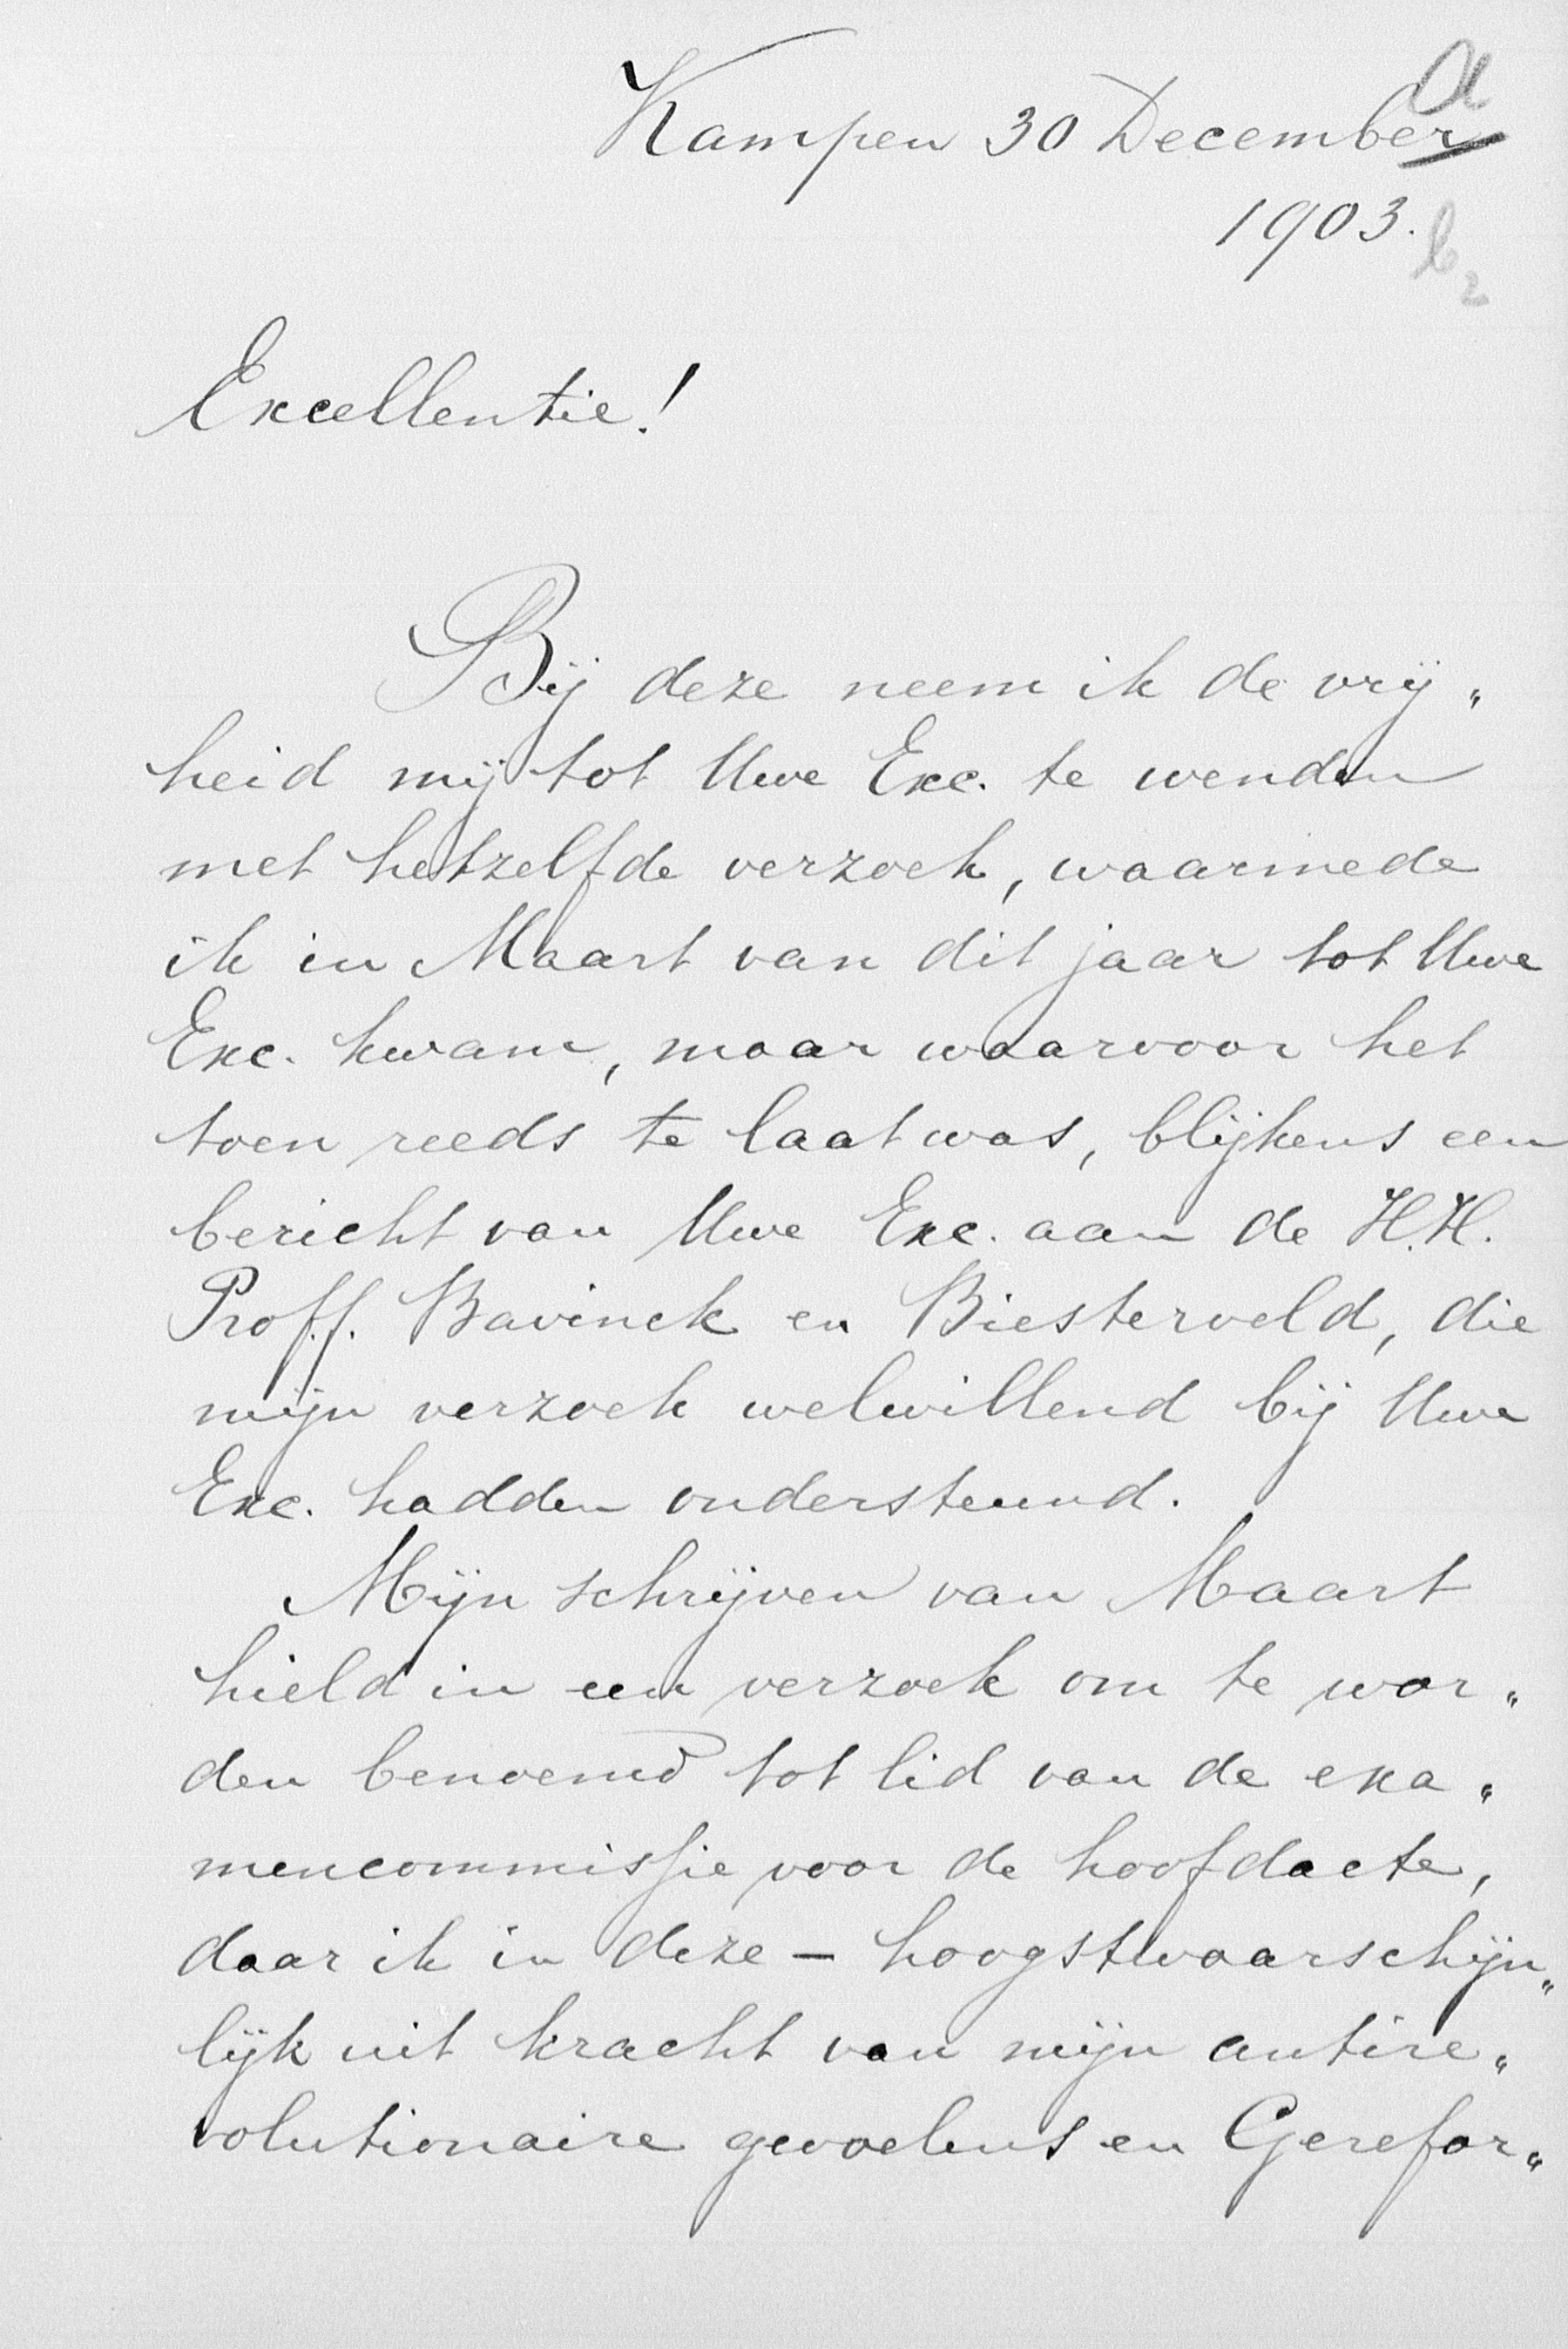 Kampen 30 December
1903.
Excellentie!
Bij deze neem ik de vrij„
heid mij tot Uwe Exc. te wenden
met hetzelfde verzoek, waarmede
ik in Maart van dit jaar tot Uwe
Exc. kwam, maar waarvoor het
toen reeds te laat was, blijkens een
bericht van Uwe Exc. aan de H.H.
Proff. Bavinck en Biesterveld, die
mijn verzoek welwillend bij Uwe
Exc. hadden ondersteund.
Mijn schrijven van Maart
hield in een verzoek om te wor„
den benoemd tot lid van de exa„
mencommissie voor de hoofdacte,
daar ik in deze – hoogstwaarschijn„
lijk uit kracht van mijn antire„
volutionaire gevoelens en Gerefor„